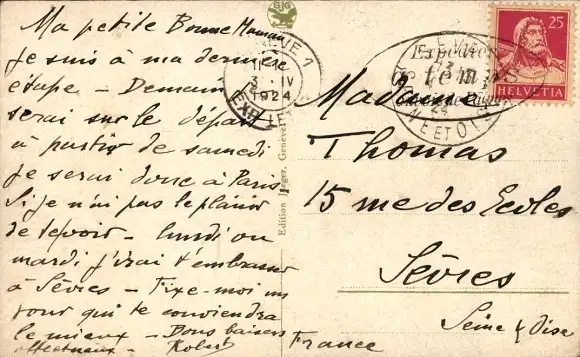 Ma petite Bonne Maman
je suis à ma dernière
étape - Demain
serai sur le départ
à partir de samedi
je serai donc à Paris
Si je n'ai pas le plaisir
de te voir - lundi ou
mardi j'irai t'embrasser
à Sèvres - Fixe-moi un
jour qui te conviendra
le mieux - Bons baisers
affectueux - Robert
GJG
GENÈVE 1
3. IV
1924
EXP. LET
Edition Jaeger, Genève
25
HELVETIA
Expédiez
à temps
24
NE ET OISE
Madame
Thomas
15 rue des Ecoles
Sèvres
Seine & Oise
France